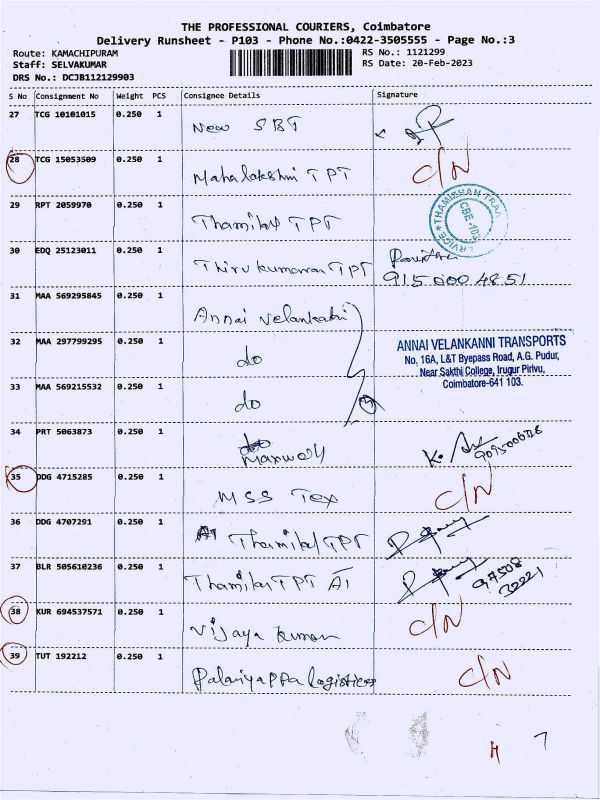 THE PROFESSIONAL COURIERS, Coimbatore
Delivery Runsheet - P103 - Phone No.:0422-3505555 - Page No.:3
Route: KAMACHIPURAM
Staff: SELVAKUMAR
DRS No.: DCJB112129903
RS No.: 1121299
RS Date: 20-Feb-2023
S No Consignment No Weight PCS Consignee Details Signature
27 TCG 10101015 0.250 1 New SBT
28 TCG 15053509 0.250 1 Mahalakshmi TPT C/N
29 RPT 2059970 0.250 1 Thamilal TPT
CBE-103
30 EDQ 25123011 0.250 1 Thirukumaran TPT
915 000 4851
31 MAA 569295845 0.250 1 Annai Velankani
32 MAA 297799295 0.250 1 do
ANNAI VELANKANNI TRANSPORTS
No. 16A, L&T Byepass Road, A.G. Pudur,
Near Sakthi College, Irugur Pirivu,
Coimbatore-641 103.
33 MAA 569215532 0.250 1 do
34 PRT 5063873 0.250 1 Maxwell
35 DDG 4715285 0.250 1 MSS Tex C/N
36 DDG 4707291 0.250 1 A1 Thamilal TPT
37 BLR 505610236 0.250 1 Thamilal TPT A1
97508
32221
38 KUR 694537571 0.250 1 Vijaya Kumar C/N
39 TUT 192212 0.250 1 Palaniyappa logistices C/N
7